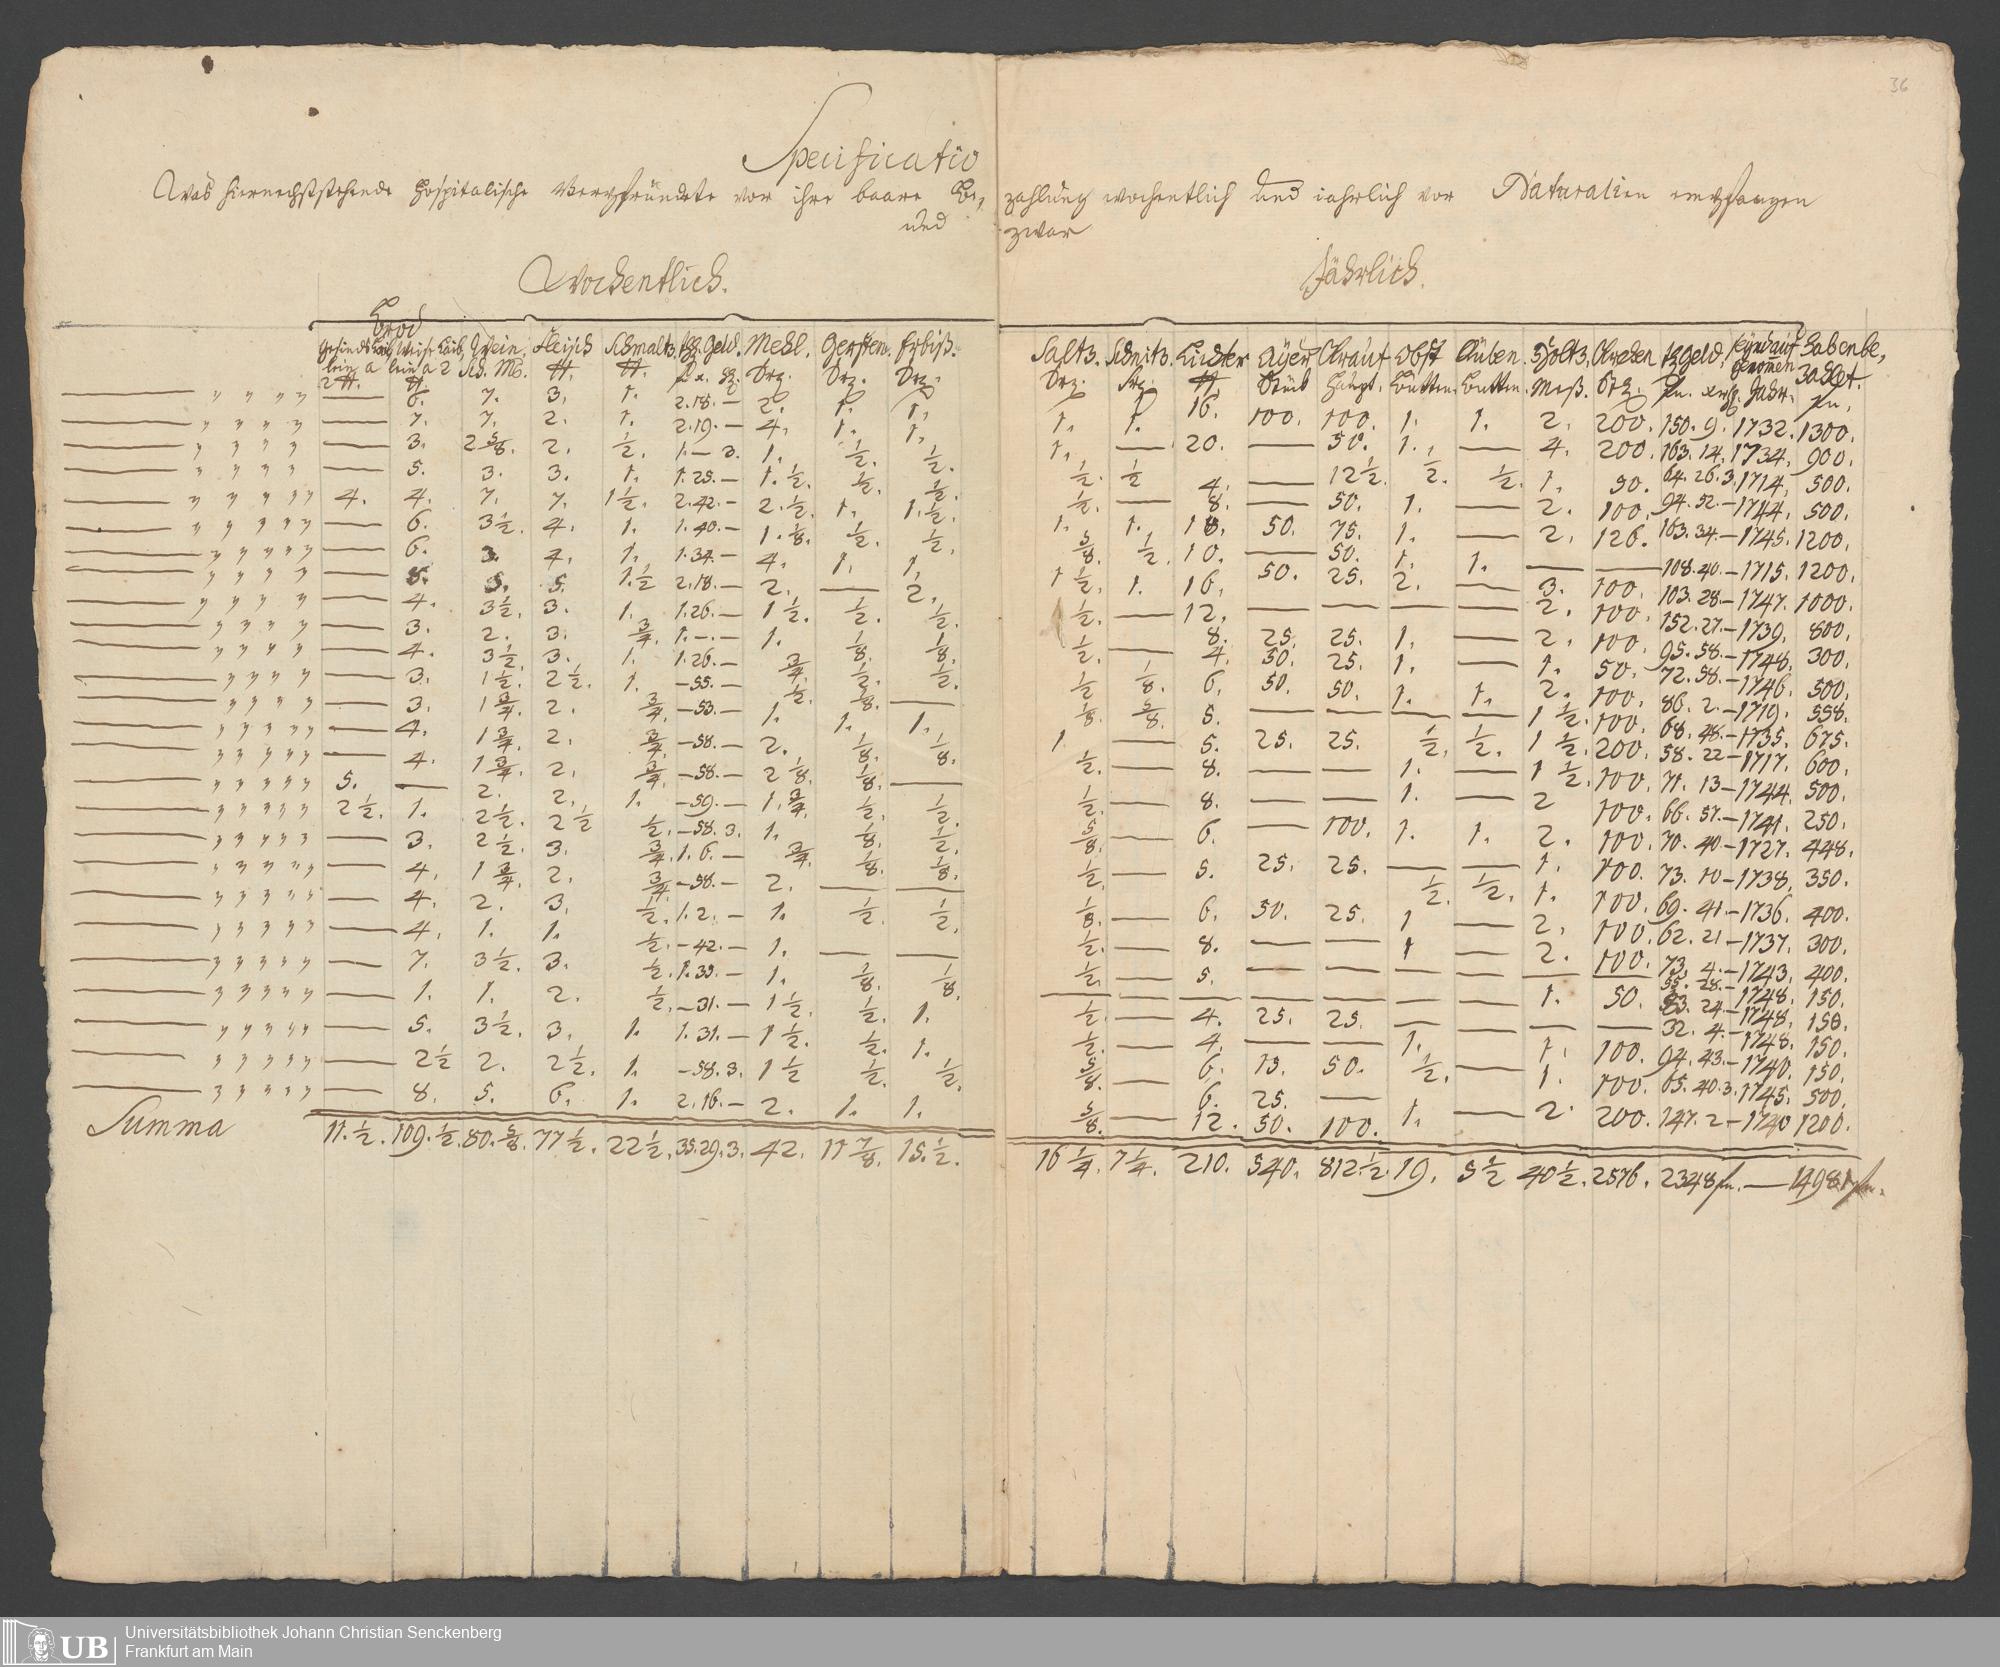 36
Specificatio
Was hiernechststehende Hospitalische Verpfründete vor ihre baare Be, zahlung wochentlich und iahrlich vor Naturalien empfangen
und zwar
Wochentlich.
Jährlich.
Brod
Gesinds Laib, Weise Laib, Wein. Fleisch Schmaltz. Geld. Mehl. Gersten. Erbiß.
Saltz. Schnitz. Lichter Ayer Kraut Obst Rüben. Holtz. Geld. Haben be,
lein a lein a 2 Sch. M. ℔. ℔. Srz. Srz. Srz.
zahlet.
2 ℔. ℔.
Srz. Srz. ℔ Stück Haupt. Butten. Butten. Meß. Stk. fn. Jahr. fn.
6. 7. 3. 1. 2.18.— 2. 1. 1.
7. 7. 2. 1. 2.19.— 4. 1. 1.
3. 2 5/8. 2. 1/2. 1.— 3. 1. 1/2. 1/2.
5. 3. 3. 1. 1.25.— 1.1/2. 1/2. 1/2.
4. 4. 7. 7. 1 1/2. 2.42.— 2.1/2. 1. 1.1/2.
— 6. 3 1/2. 4. 1. 1.40.— 1.1/8. 1/2. 1/2.
— 6. 3. 4. 1. 1.34.— 4. 1. 1.
— 8. 5. 5. 1.1/2 2.18.— 2. — 2.
— 4. 3 1/2. 3. 1. 1.26.— 1 1/2. 1/2. 1/2.
— 3. 2. 3. 3/4. 1.—.— 1. 1/8. 1/8.
— 4. 3 1/2. 3. 1. 1.26.— 3/4. 1/2. 1/2.
— 3. 1 1/2. 2 1/2. 1. —55.— 1/2. 5/8. —
— 3. 1 3/4. 2. 3/4. —53.— 1. 1. 1.
— 4. 1 3/4. 2. 3/4. —58.— 2. 1/8. 1/8.
— 4. 1 3/4. 2. 3/4. —58.— 2 1/8. 1/8. —
5. — 2. 2. 1. —59.— 1.3/4. 1/2. 1/2.
2 1/2. 1. 2 1/2. 2 1/2 1/2. —58. 3. 1. 1/8. 1/2.
— 3. 2 1/2. 3. 3/4. 1. 6.— 3/4. 1/8. 1/8.
— 4. 1 3/4. 2. 3/4. —58.— 2. — —
— 4. 2. 3. 1/2. 1. 2.— 1. 1/2. 1/2.
— 4. 1. 1. 1/2. —42.— 1. — —
— 7. 3 1/2. 3. 1/2. 1.39.— 1. 1/8. 1/8.
— 1. 1. 2. 1/2. —31.— 1 1/2. 1/2. 1.
— 5. 3 1/2. 3. 1. 1.31.— 1 1/2. 1/2. 1.
— 2 1/2 2. 2 1/2. 1. —58.3. 1 1/2 1/2. 1/2.
— 8. 5. 6. 1. 2.16.— 2. 1. 1.
Summa 11.1/2. 109.1/2. 80.5/8. 77 1/2. 22 1/2. 35.29.3. 42. 11 7/8. 15.1/2.
1. 1. 16. 100. 100. 1. 1. 2. 200. 150. 9. 1732. 1300.
1. — 20. — 50. 1. — 4. 200. 163. 14. 1734. 900.
1/2. 1/2 4. — 12 1/2. 1/2. 1/2. 1. 50. 64. 26. 3. 1714. 500.
1/2. — 8. — 50. 1. — 2. 100. 94. 52.— 1744. 500.
1. 1. 18. 50. 75. 1. — 2. 126. 163. 34.— 1745. 1200.
5/8. 1/2. 10. — 50. 1. 1. — — 108. 40.— 1715. 1200.
1 1/2. 1. 16. 50. 25. 2. — 3. 100. 103. 28.— 1747. 1000.
1/2. — 12. — — — — 2. 100. 152. 27.— 1739. 800.
1/2. — 8. 25. 25. 1. — 2. 100. 95. 58.— 1748. 300.
4. 50. 25. 1. — 1. 50. 72. 58.— 1746. 500.
1/2 1/8. 6. 50. 50. 1. 1. 2. 100. 86. 2.— 1719. 558.
1/8. 5/8. 5. — — — — 1 1/2. 100. 68. 48.— 1735. 675.
1 — 5. 25. 25. 1/2. 1/2. 1 1/2. 200. 58. 22— 1717. 600.
1/2. — 8. — — 1. — 1 1/2. 100. 71. 13— 1744. 500.
1/2. — 8. — — 1. — 2 100. 66. 57.— 1741. 250.
5/8. — 6. — 100. 1. 1. 2. 100. 70. 40— 1727. 448.
1/2. — 5. 25. 25. — — 1. 100. 73. 10— 1738. 350.
1/8. — 6. 50. 25. 1/2. 1/2. 1. 100. 69. 41— 1736. 400.
1/2. — 8. — — 1 — 2. 100. 62. 21— 1737. 300.
1/2. — 5. — — 1 — 2. 100. 73. 4.— 1743. 400.
— — — — — — — — — 55. 28.— 1748. 150.
1/2. — 4. 25. 25. — — 1. 50. 83. 24— 1748. 150.
1/2. — 4. — — 1. — — — 32. 4.— 1748. 150.
5/8. — 6. 15. 50. 1/2. — 1. 100. 94. 43.— 1740. 150.
6. 25. — 1. 100. 65. 40. 3. 1745. 500.
5/8. — 12. 50. 100. 1. — 2. 200. 147. 2— 1740 1200.
16 1/4. 7 1/4. 210. 540. 812.1/2. 19. 5 1/2 40 1/2. 2576. 2348 fn. — 14981 fn.
UB
Universitätsbibliothek Johann Christian Senckenberg
Frankfurt am Main